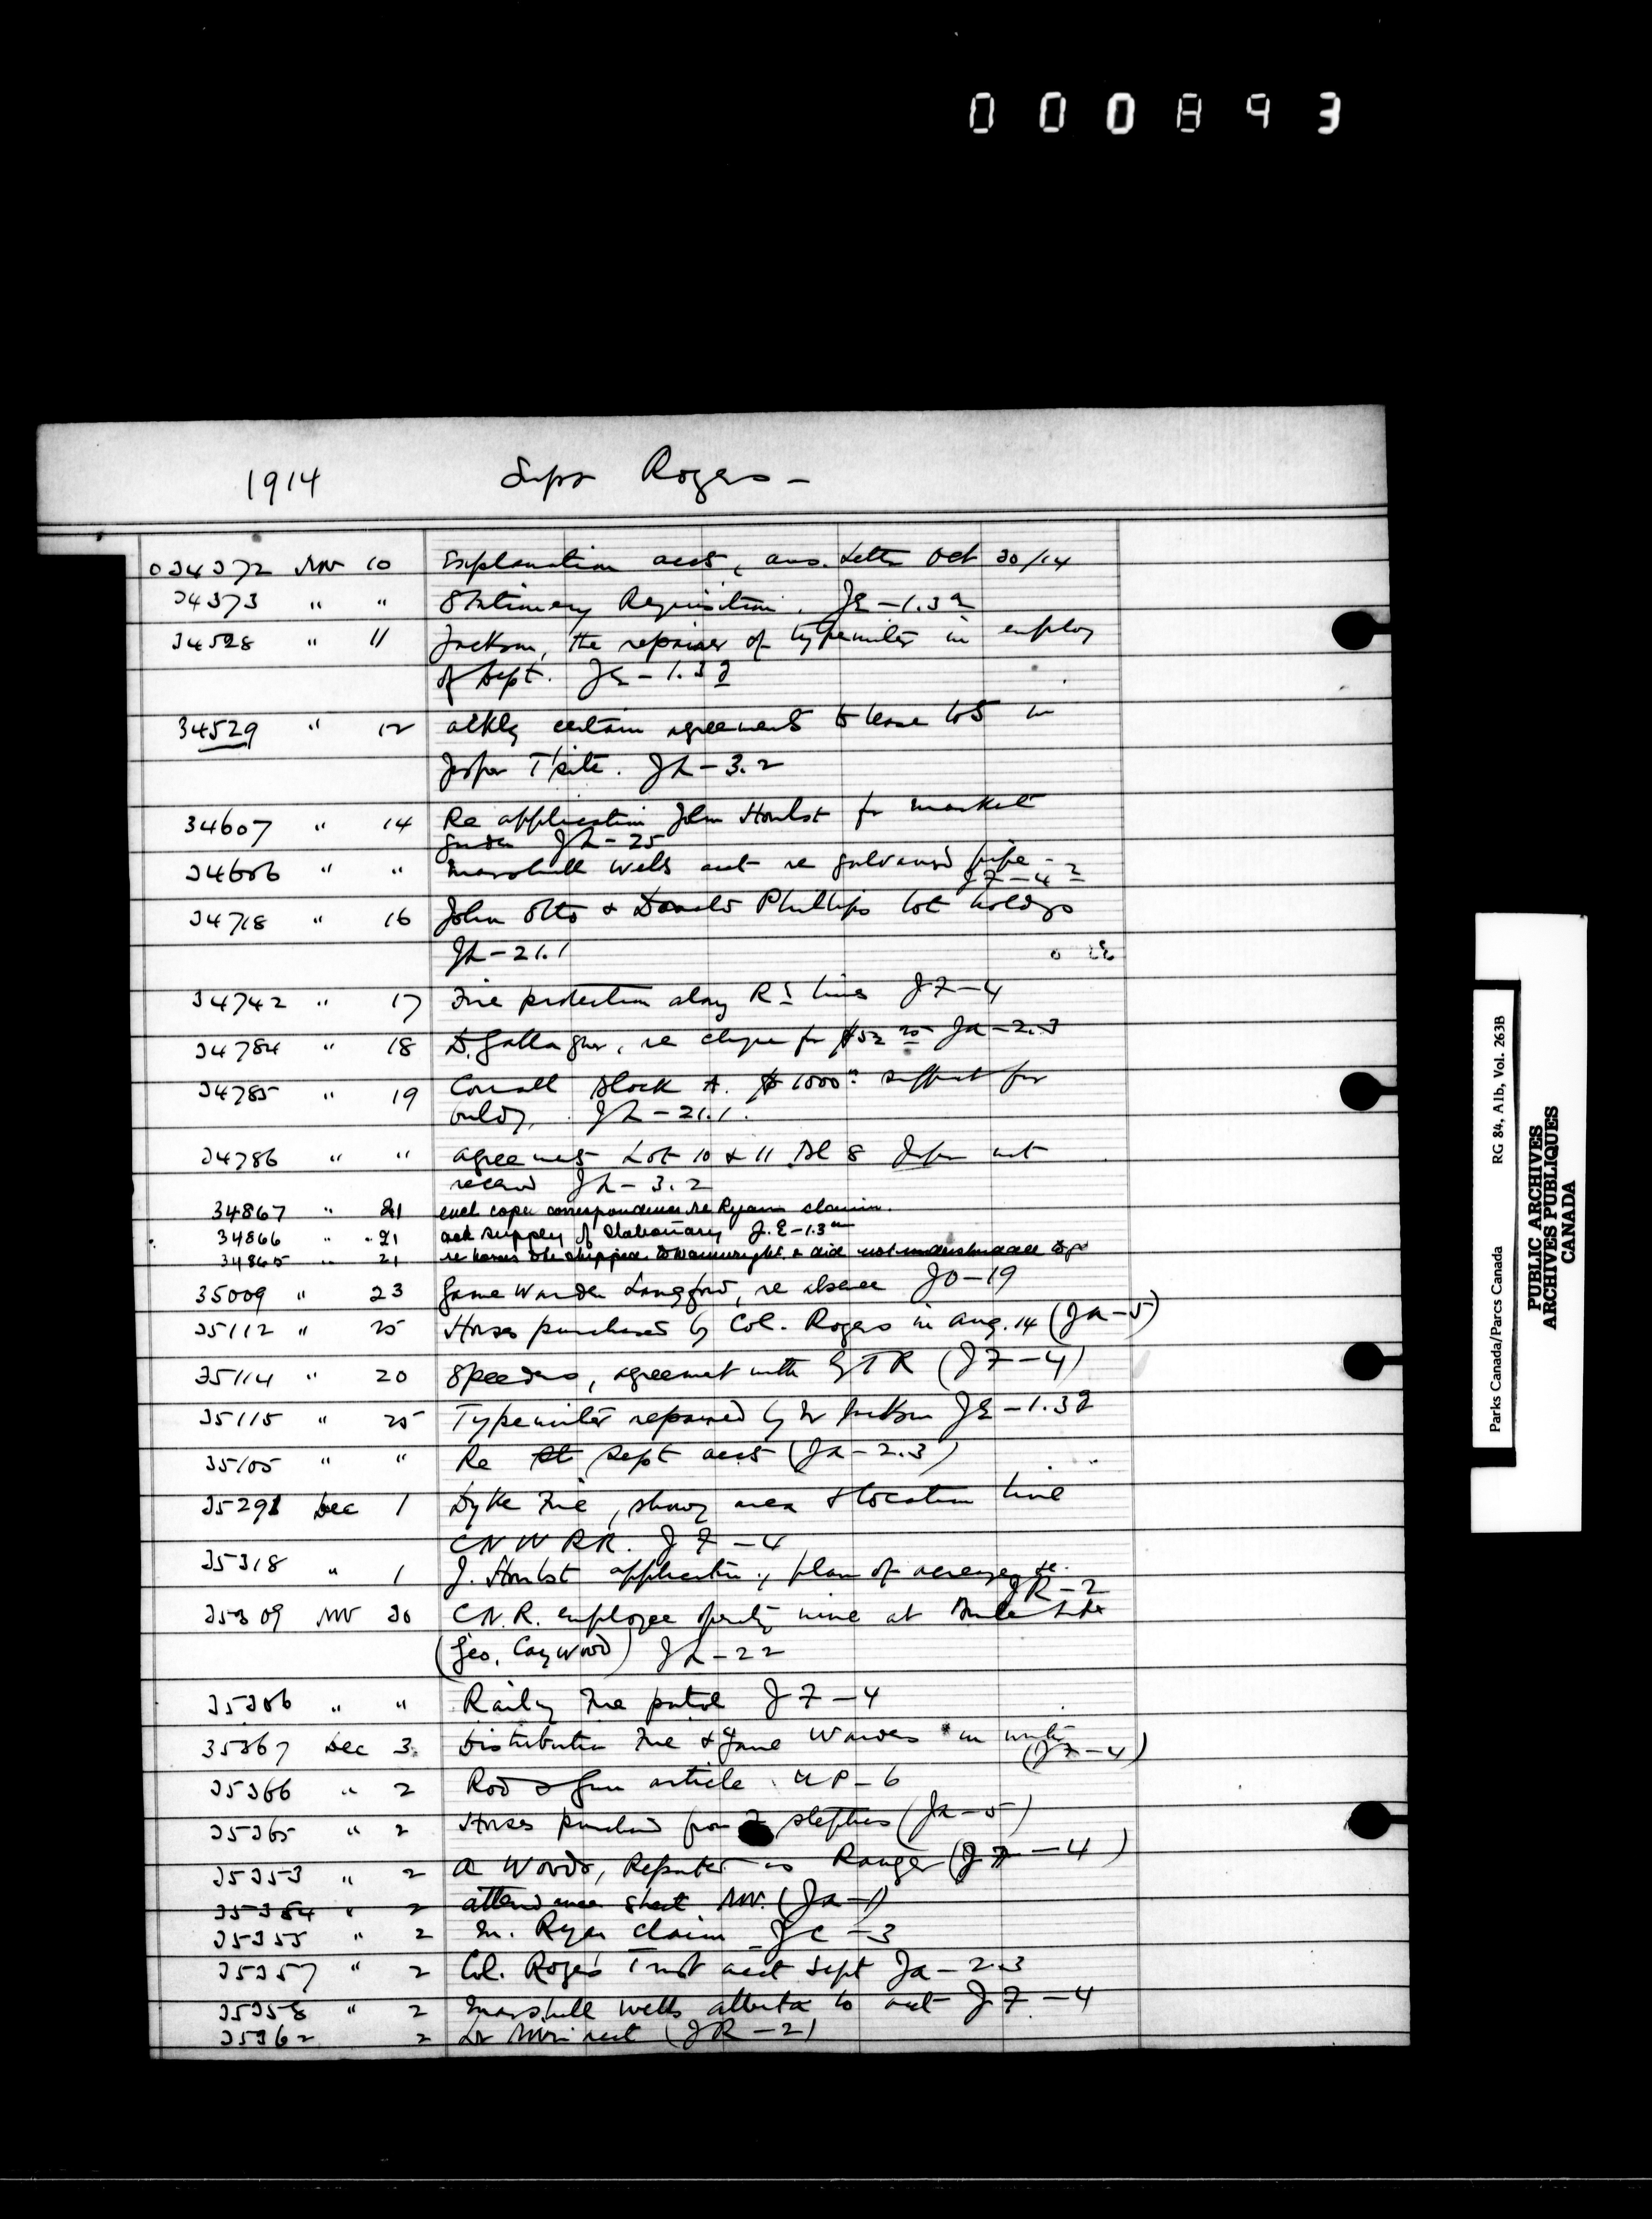 000893
1914 Supt Rogers -
034372 Nov 10 Explanation accts, ans. Letter Oct 30/14
34373 " " Stationery Requisition. JE-1.3a
34528 " 11 Jackson, the repairer of typewriter in employ
of Dept. JE-1.3
34529 " 12 certain agreements to lease lots in
Jasper T'site. JL-3.2
34607 " 14 Re application John for market
garden JL-25
" " Marshall Wells acct re galvanised pipe -
J7-4
34718 " 16 John Otto & Donald Phillips lot holdings
JL-21.1
34742 " 17 Fire protection along Ry lines J7-4
34784 " 18 D. Gallagher, re cheque for $52 Ja-2.3
34785 " 19 Block A. $1000 sufficient for
building. JL-21.1.
34786 " " agreements Lot 10 & 11 Bl 8 Jasper not
received JL-3.2
34867 " 21 encl copies correspondence re Ryan claim.
34866 " 21 ack supply of Stationary J.E-1.3
34865 " 21 re horses to be shipped to Wainwright & did not understand
35009 " 23 Game Warden Langford, re absence JO-19
35112 " 25 Horses purchased by Col. Rogers in Aug. 14 (Ja-5)
35114 " 20 Speeders, agreement with GTR (J7-4)
35115 " 25 Typewriter repaired by Mr Jackson JE-1.3
35105 " " Re Sept accts (Ja-2.3)
35291 Dec 1 Dyke Fire, showing area & location line
CNWRR. J7-4
35318 " 1 J. application, plan of acreage etc.
JR-2
35309 Nov 30 C.N.R. employee at
(Geo. Caywood) JL-22
" " Railway Fire patrol J7-4
35367 Dec 3 Distribution Fire & Game Wardens in winter
(J7-4)
35366 " 2 Rod & Gun article. UP-6
35365 " 2 Horses purchased from Stephens (Ja-5)
35353 " 2 A Woods, Reported as Ranger (J7-4)
35354 " 2 attendance sheet Nov. (Ja-1)
35355 " 2 M. Ryan claim JC-3
35357 " 2 Col. Rogers Trust acct Sept Ja-2.3
35358 " 2 Marshall Wells Alberta Co acct J7-4
35362 2 (JR-2)
Parks Canada/Parcs Canada RG 84, Alb, Vol. 263B
PUBLIC ARCHIVES
ARCHIVES PUBLIQUES
CANADA